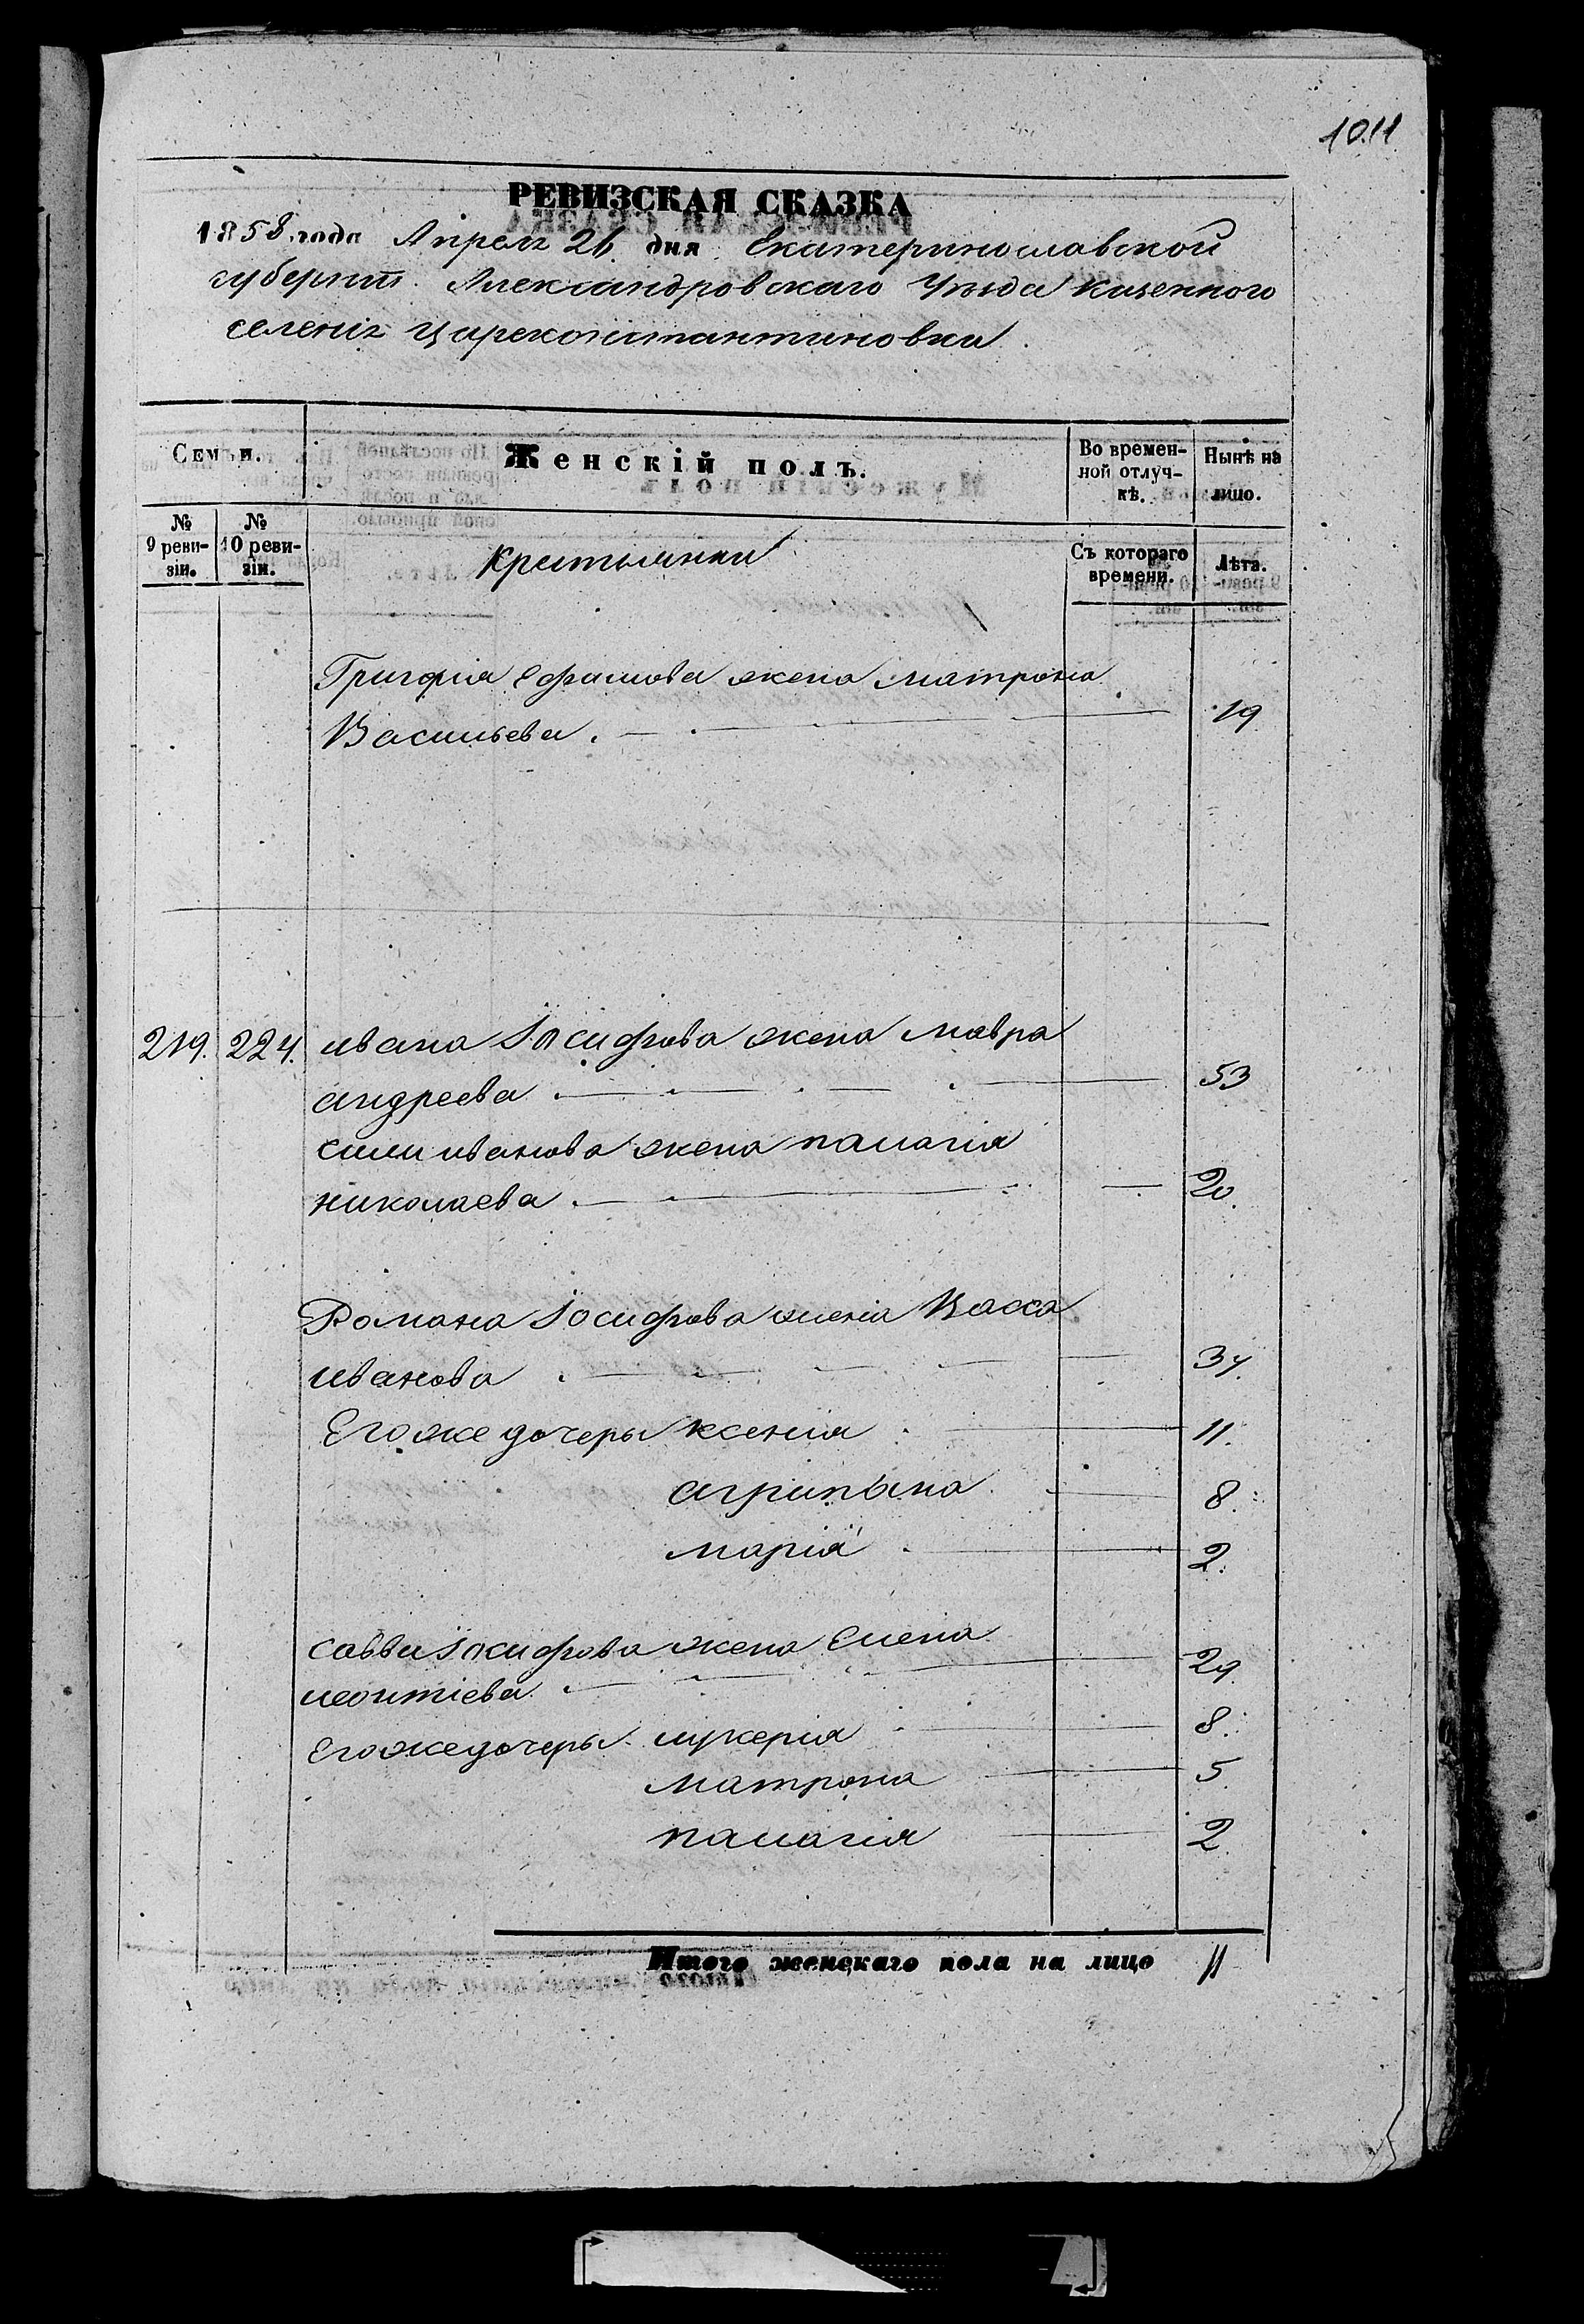 1011
РЕВИЗСКАЯ СКАЗКА
1858 года Апреля 26. дня Екатеринославской
губерніи Александровскаго Уѣзда Казенного
селенія Цареконстантиновки.
Семьи.
Женскій полъ.
Во времен-
ной отлуч-
кѣ.
Нынѣ на
лицо.
№
9 реви-
зіи.
№
10 реви-
зіи.
Крестьянки
Съ котораго
времени.
Лѣта.
Григорія Ефимова жена Матрона
Васильева. 19
219. 224. ивана Іосифова жена мавра
андреева 53
силы иванова жена палагія
николаева 20.
Романа Іосифова жена Васса
иванова 34.
Егоже дочеры ксенія 11.
агрипина 8.
марія 2.
саввы Іосифова жена Елена
леонтіева 29
Егоже дочеры лукерія 8.
матрона 5.
палагія 2
Итого женскаго пола на лицо 11